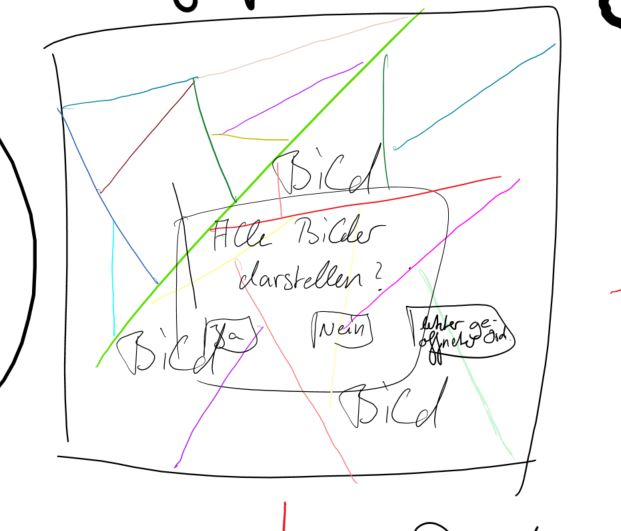 Bild
Alle Bilder
darstellen?
Bild
Ja
Nein
letzter ge-
Bild